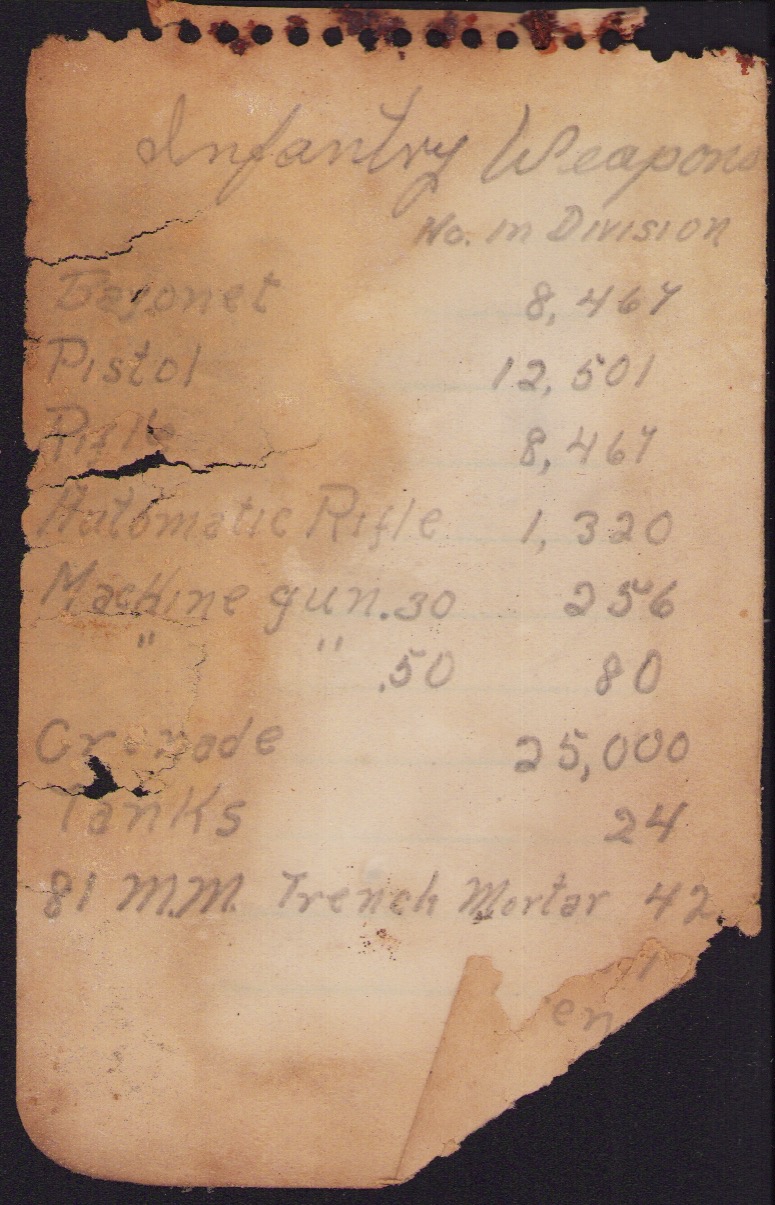 Infantry Weapons
No. in Division
Bayonet 8,467
Pistol 12,501
Rifle 8,467
Automatic Rifle 1,320
Machine gun .30 256
" " .50 80
Grenade 25,000
Tanks 24
81 M.M. Trench Mortar 42
en